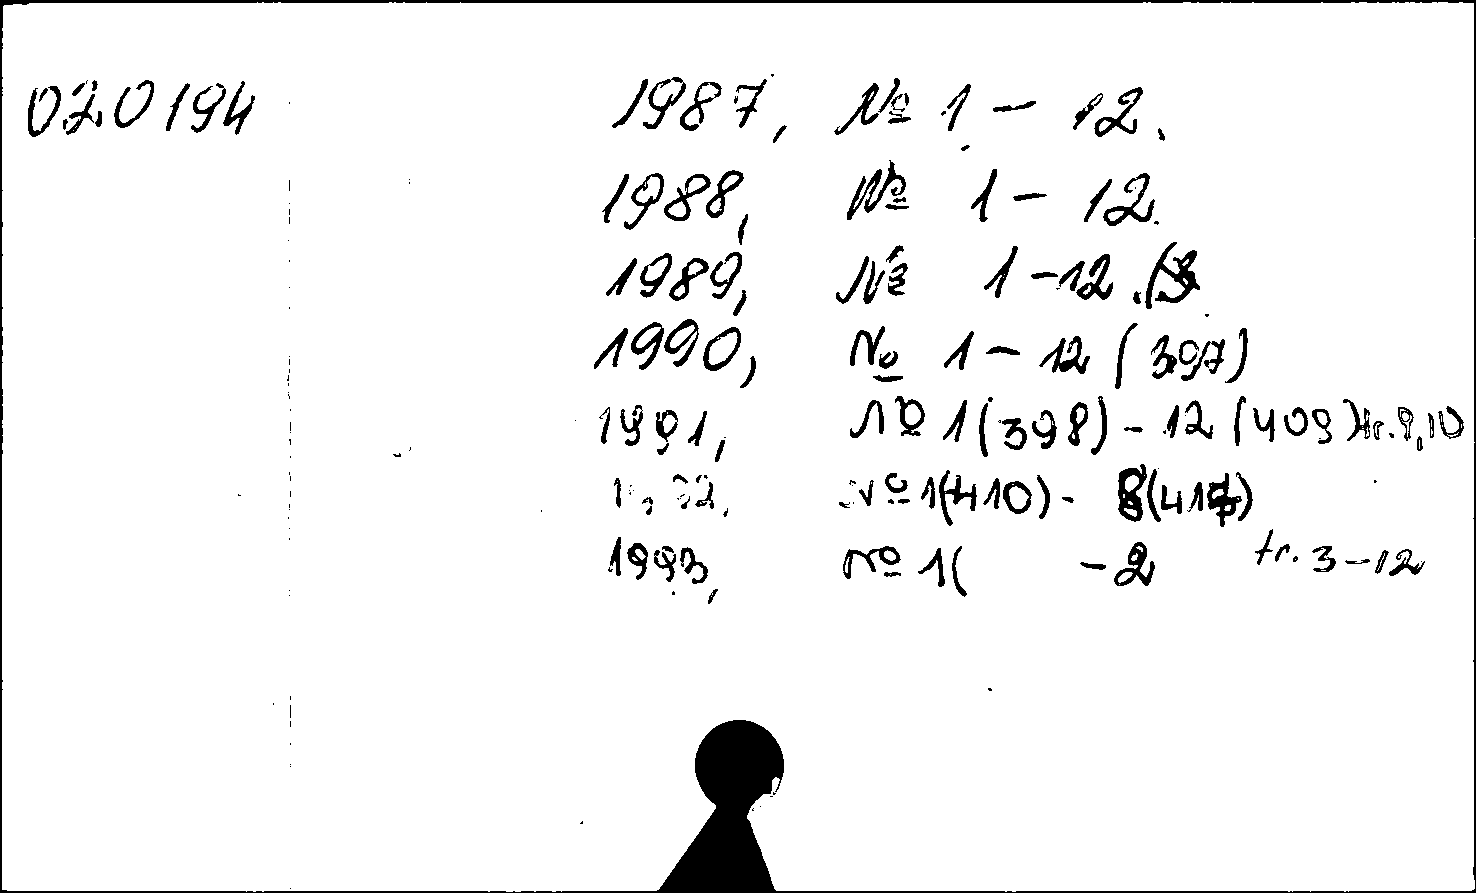 020194 1987, № 1 - 12.
1988, № 1 - 12.
1989, № 1 - 12.
1990, № 1 - 12 (397)
1991, № 1 (398) - 12 (409) tr. 9,10
1992, № 1 (410) - 8 (417)
1993, № 1 ( - 2 tr. 3 - 12